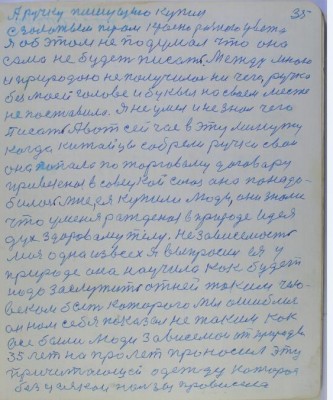 35
А ручку пишущую купил
с золотым пером красно разного цвета
Я об этом не подумал что она
сама не будет писать. Между мною
и природою не получилось ни чего, ручка
без моей голове и буквы на своем месте
не поставила. Я не умел и не знал чего
писать А вот сейчас в эту минуту
когда китайцы собрали ручку свою
она попала по торговому договору
привезена в советской союз она понадо-
билась мне, я купили люди, они знали
что у меня рождена в природе идея
дух здоровому телу. Независимость
моя одна из всех я выпросил её у
природе она научила как будет
надо заслужить от ней таким чело-
веком быть которого мы ошибли
он нам себя показал не таким как
все были люди зависемы от природы
35 лет на пролет проносил эту
причитающей одежду которая
без всякой пользы провисела